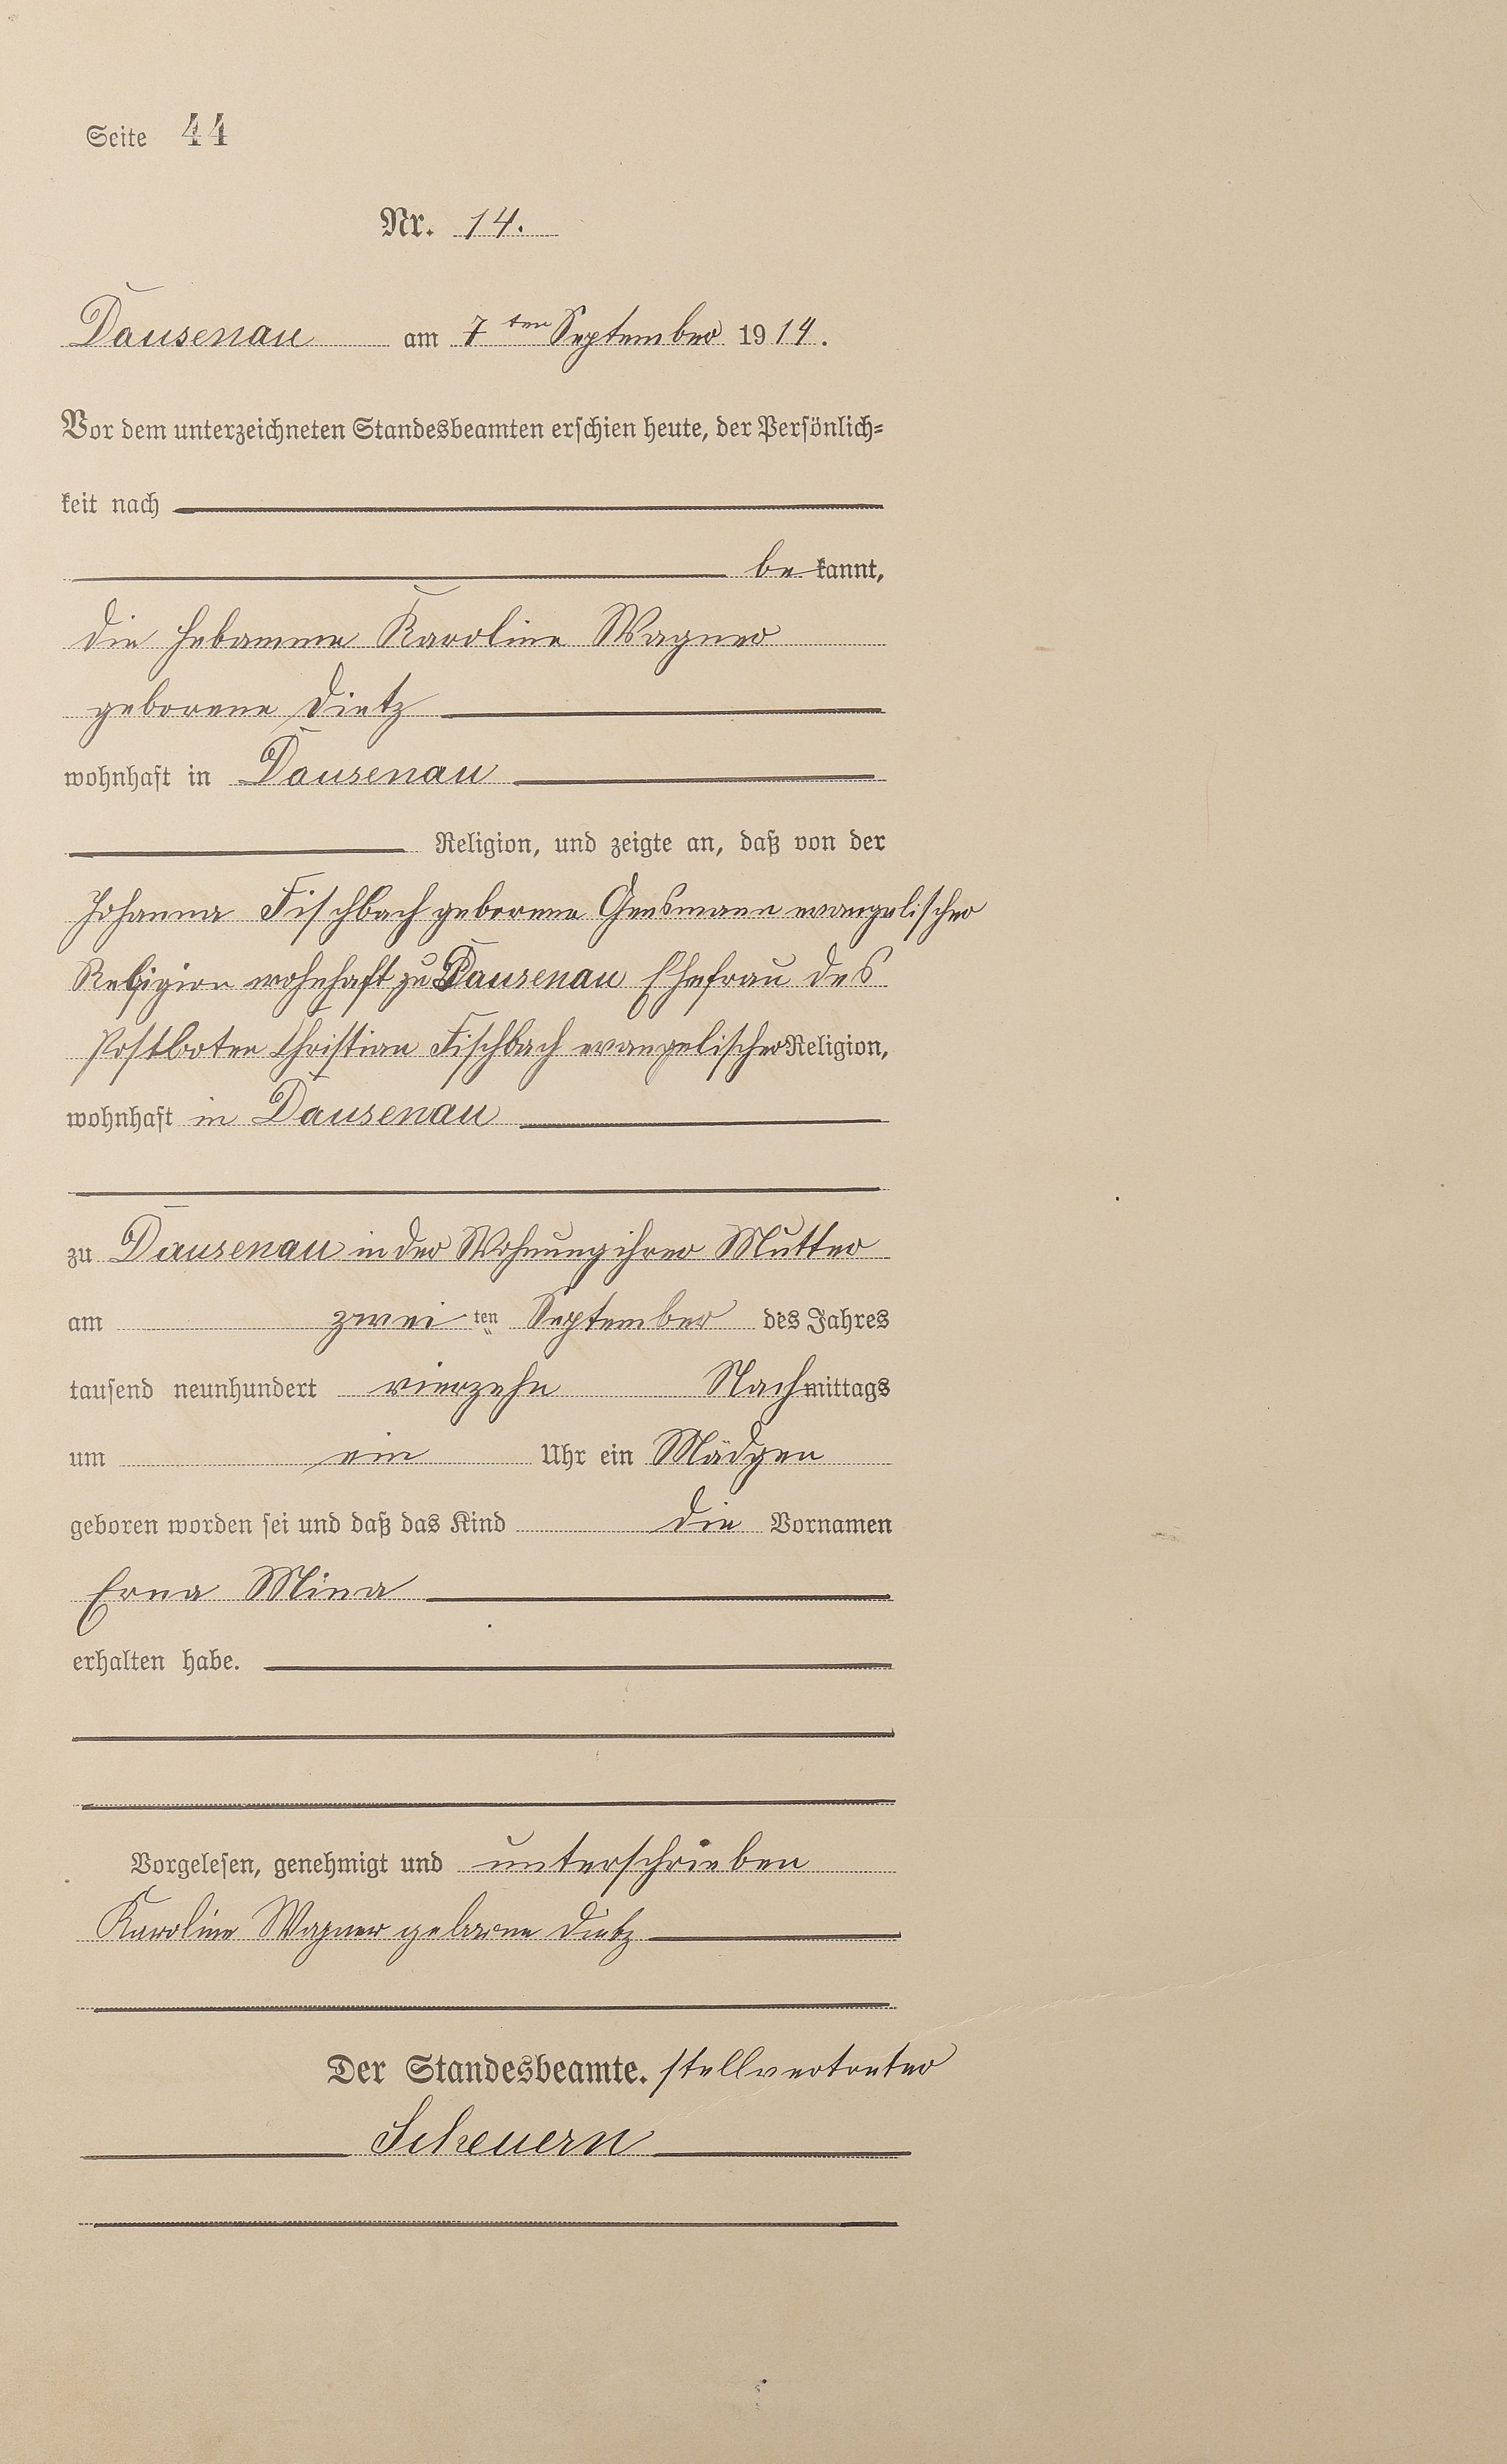 Seite 44
Nr. 14.
Dausenau am 7ten September 1914.
Vor dem unterzeichneten Standesbeamten erschien heute, der Persönlich=
keit nach
be kannt,
die Hebamme Karoline Wagner
geborene Dietz
wohnhaft in Dausenau
Religion, und zeigte an, daß von der
Johanna Fischbach geborene Gensmann evangelischer
Religion wohnhaft zu Dausenau Ehefrau des
Postboten Christian Fischbach evangelischer Religion,
wohnhaft in Dausenau
zu Dausenau in der Wohnung ihrer Mutter
am zwei ten September des Jahres
tausend neunhundert vierzehn Nachmittags
um ein Uhr ein Mädgen
geboren worden sei und daß das Kind die Vornamen
Erna Mina
erhalten habe.
Vorgelesen, genehmigt und unterschrieben
Karoline Wagner geborene Dietz
Der Standesbeamte. stellvertreter
Scheuern